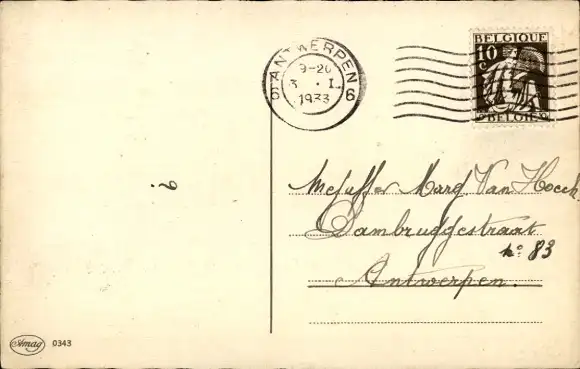 BELGIQUE
10 c
BELGIË
6 ANTWERPEN 6
9-20
3 . I.
1933
Mejuffer Marg. Van Hoeck
Dambruggestraat
no 83
Antwerpen.
Amag 0343